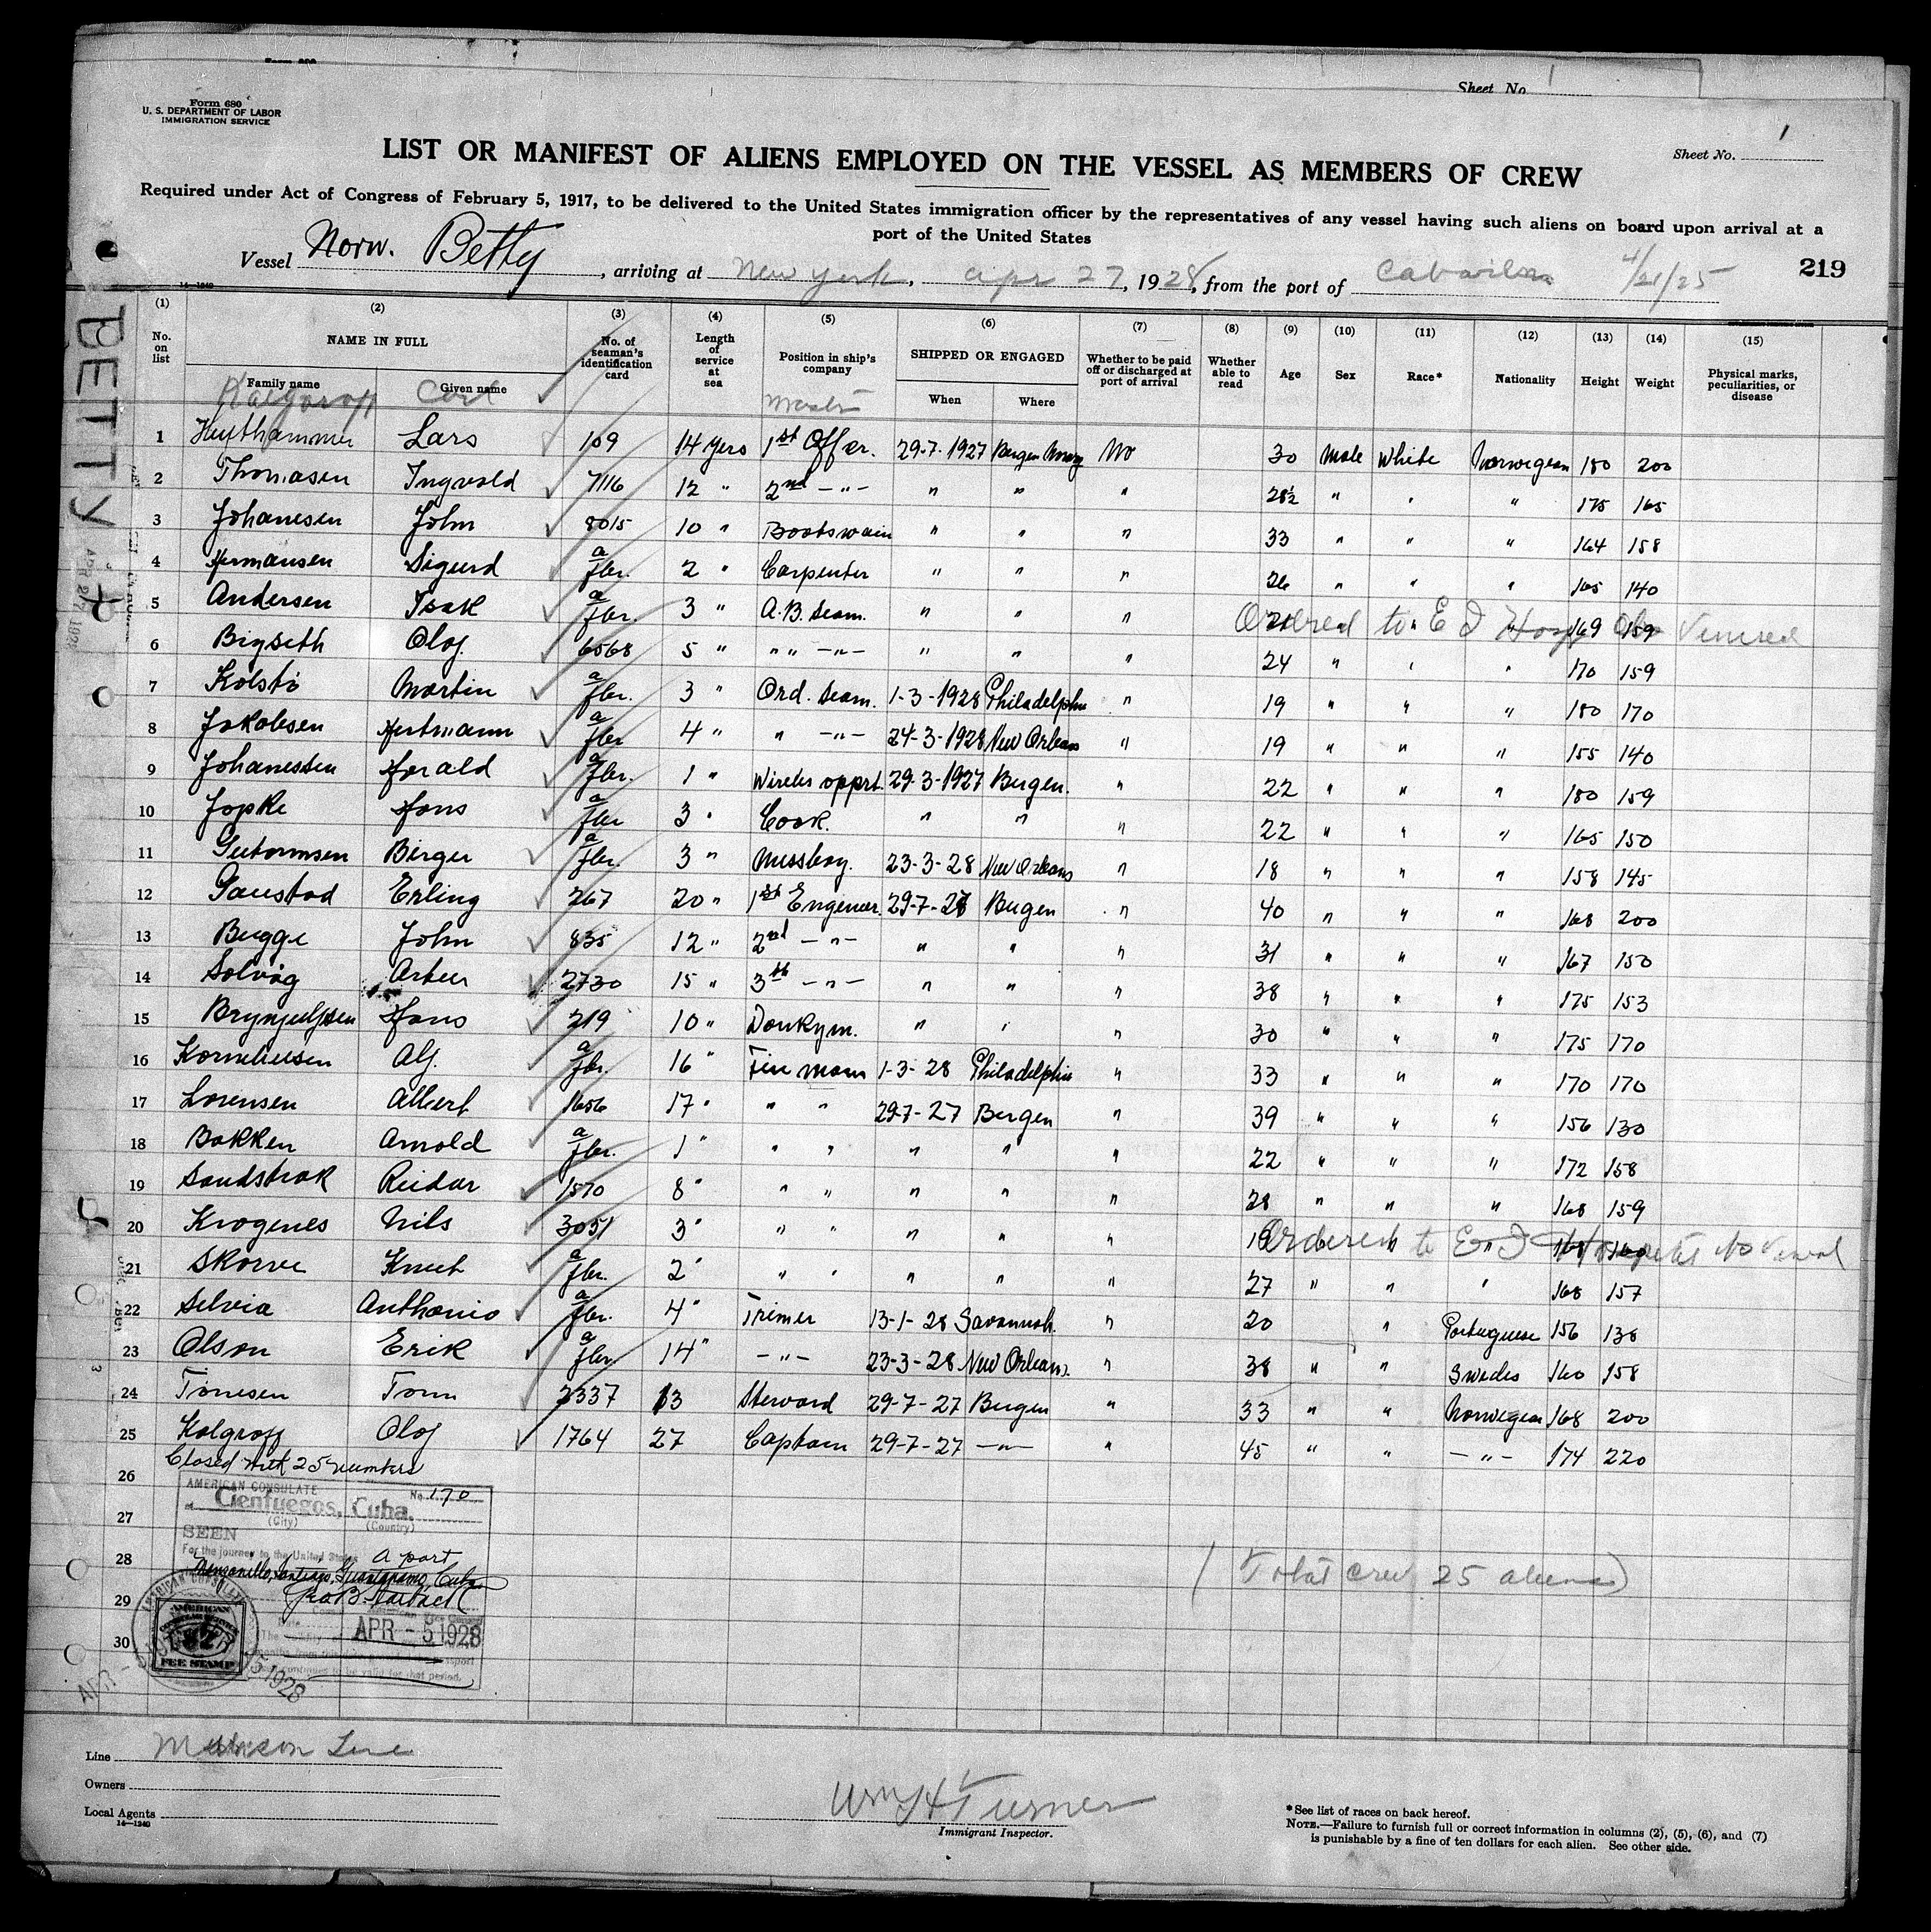 Sheet No. 1
Form 680
U. S. DEPARTMENT OF LABOR
IMMIGRATION SERVICE
Sheet No. 1
LIST OR MANIFEST OF ALIENS EMPLOYED ON THE VESSEL AS MEMBERS OF CREW
Required under Act of Congress of February 5, 1917, to be delivered to the United States immigration officer by the representatives of any vessel having such aliens on board upon arrival at a
port of the United States
Vessel Norw. Betty, arriving at New York, Apr 27, 1928, from the port of
219
14-1240
BETTY
(1) (2) (3) (4) (5) (6) (7) (8) (9) (10) (11) (12) (13) (14) (15)
No. on list NAME IN FULL Family name Given name No. of seaman's identification card Length of service at sea Position in ship's company SHIPPED OR ENGAGED When Where Whether to be paid off or discharged at port of arrival Whether able to read Age Sex Race* Nationality Height Weight Physical marks, peculiarities, or disease
Master
1 Lars 109 14 yers 1st Officer. 29-7-1927 Bergen Norway No 30 Male White Norwegian 180 200
2 Thomasen Ingvald 7116 12 " 2nd -"- " " " 28½ " " " 175 165
3 Johanesen John 8015 10 " Bootswain " " " 33 " " " 164 158
4 Hermansen Sigurd a/fbr. 2 " Carpenter " " " 26 " " " 165 140
5 Andersen Isak a/fbr. 3 " A.B. Seam. " " " 169 159 Ordered to E I Hosp Venereal
6 Bigseth Olof 6568 5 " " " -"- " " " 24 " " " 170 159
7 Kolstö Martin a/fbr. 3 " Ord. Seam. 1-3-1928 Philadelphia " 19 " " " 180 170
8 Jakobsen Hertmann a/fbr 4 " " -"- 24-3-1928 New Orleans " 19 " " " 155 140
9 Johanessen Harald a/fbr. 1 " Wireles opprt. 29-3-1927 Bergen. " 22 " " " 180 159
10 Jopke Hans a/fbr 3 " Cook. " " " 22 " " " 165 150
11 Gutormsen Birger a/fbr. 3 " Messboy. 23-3-28 New Orleans " 18 " " " 158 145
12 Gaustad Erling 267 20 " 1st Engeneer. 29-7-27 Bergen " 40 " " " 168 200
13 Bugge John 835 12 " 2nd -"- " " " 31 " " " 167 150
14 Solvåg Artur 2730 15 " 3th -"- " " " 38 " " " 175 153
15 Brynjulfsen Hans 219 10 " Donkym. " " " 30 " " " 175 170
16 Korneliusen Alf. a/fbr. 16 " Fire man 1-3-28 Philadelphia " 33 " " " 170 170
17 Lorensen Albert 1656 17 " " " 29-7-27 Bergen " 39 " " " 156 130
18 Bakken Arnold a/fbr. 1 " " " " " " 22 " " " 172 158
19 Sandstrak Reidar 1570 8 " " " " " " 28 " " " 168 159
20 Krogenes Nils 3051 3 " " " " " " 168 160 Ordered to E I Hospital
21 Skorve Knut a/fbr. 2 " " " " " " 27 " " " 168 157
22 Selvia Anthonio a/fbr. 4 " Trimer 13-1-28 Savannah. " 20 " Portuguese 156 138
23 Olson Erik a/fbr. 14 " -"- 23-3-28 New Orleans. " 38 " " Swedes 160 158
24 Tönesen Tom 2337 13 Steward 29-7-27 Bergen " 33 " " Norwegean 168 200
25 Kalgraff Olof 1764 27 Captain 29-7-27 -"- " 45 " " -"- 174 220
26 Closed with 25 numbers
27
28
29
30
AMERICAN CONSULATE No. 170
at Cienfuegos, Cuba.
(City) (Country)
SEEN
For the journey to the United States a port
Manzanillo, Santiago, Guantanamo, Cuba
APR - 5 1928
AMERICAN
FEE STAMP
APR - 5 1928
(Total crew 25 aliens)
Line Munson Line
Owners
Local Agents
14-1240
Wm H Turner
Immigrant Inspector.
*See list of races on back hereof.
NOTE.—Failure to furnish full or correct information in columns (2), (5), (6), and (7)
is punishable by a fine of ten dollars for each alien. See other side.